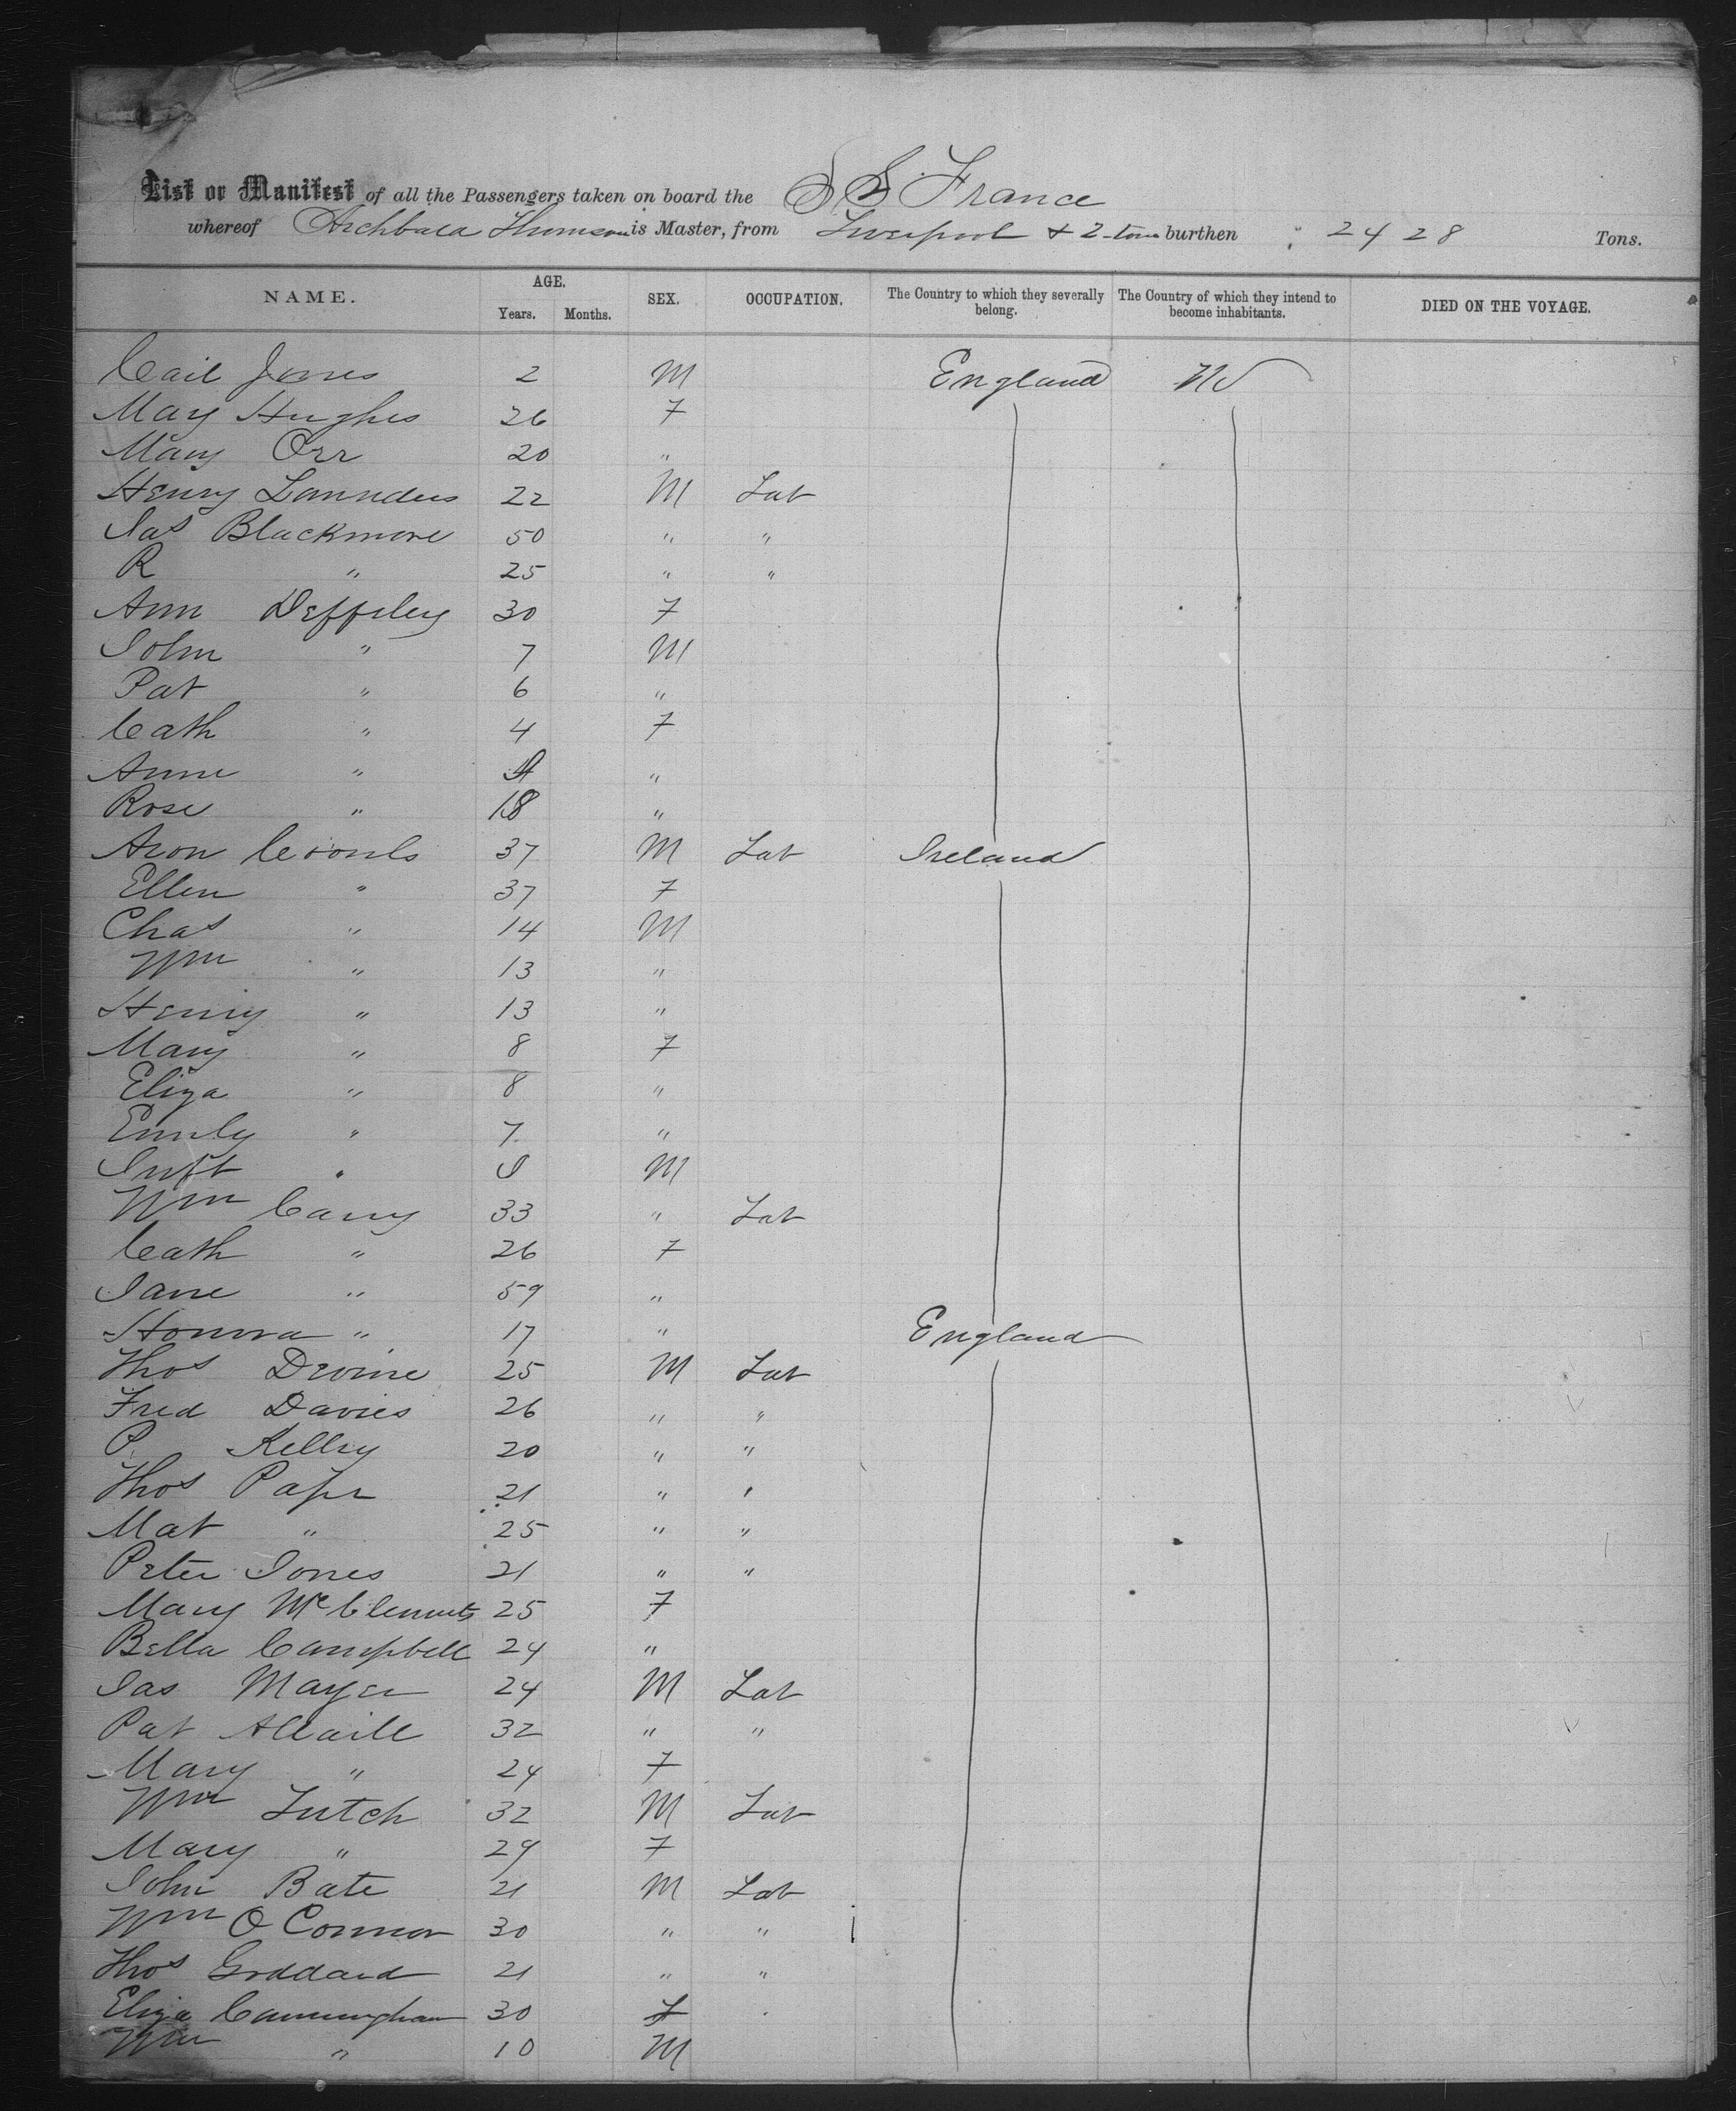 List or Manifest of all the Passengers taken on board the S S France
whereof Archbald Thomson is Master, from Liverpool & 2-town burthen 2428 Tons.
NAME. AGE. Years. Months. SEX. OCCUPATION. The Country to which they severally belong. The Country of which they intend to become inhabitants. DIED ON THE VOYAGE.
Jones 2 M England
Mary Hughes 26 F
Mary Orr 20 "
Henry Launders 22 M Lab
Jas Blackmore 50 " "
R " 25 " "
Ann Deffiley 30 F
John " 7 M
Pat " 6 "
Cath " 4 F
Anne " "
Rose " 18 "
Aron 37 M Lab Ireland
Ellen " 37 F
Chas " 14 M
Wm " 13 "
Henry " 13 "
Mary " 8 F
Eliza " 8 "
Emily " 7 "
Inft " M
Wm Carry 33 " Lab
Cath " 26 F
Jane " 59 "
Honora " 17 " England
Thos Devine 25 M Lab
Fred Davies 26 " "
P. Kelley 20 " "
Thos Pape 21 " "
Mat " 25 " "
Peter Jones 21 " "
Mary McClements 25 F
Bella Campbell 24 "
Jas Mayer 24 M Lab
Pat 32 " "
Mary " 24 F
Wm 32 M Lab
Mary " 29 F
John Bate 21 M Lab
Wm O Connor 30 " "
Thos Goddard 21 " "
Eliza Cunningham 30 F
Wm " 10 M